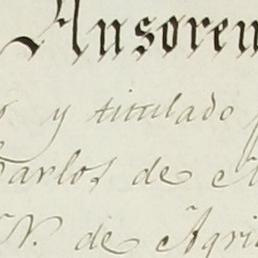 Ansoren
y titulado
Carlos de
N. de Agri